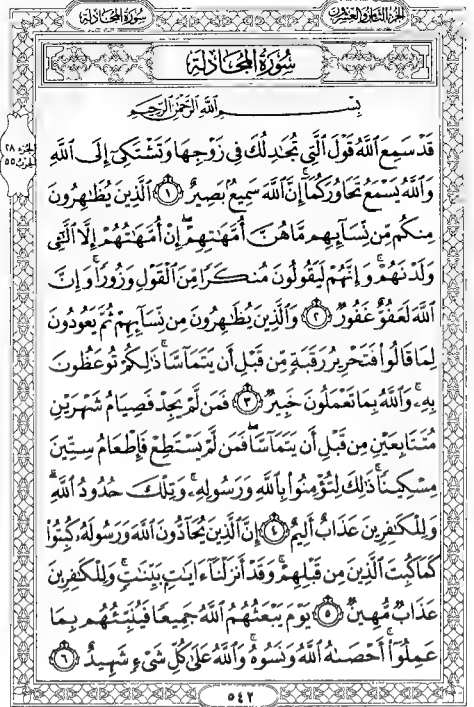 الجزء الثامن والعشرون سورة المجادلة
سورة المجادلة
بسم الله الرحمن الرحيم
الجزء ٢٨
الحزب ٥٥
قَدْ سَمِعَ ٱللَّهُ قَوْلَ ٱلَّتِى تُجَـٰدِلُكَ فِى زَوْجِهَا وَتَشْتَكِىٓ إِلَى ٱللَّهِ
وَٱللَّهُ يَسْمَعُ تَحَاوُرَكُمَآ ۚ إِنَّ ٱللَّهَ سَمِيعٌۢ بَصِيرٌ ١ ٱلَّذِينَ يُظَـٰهِرُونَ
مِنكُم مِّن نِّسَآئِهِم مَّا هُنَّ أُمَّهَـٰتِهِمْ ۖ إِنْ أُمَّهَـٰتُهُمْ إِلَّا ٱلَّـٰٓـِٔى
وَلَدْنَهُمْ ۚ وَإِنَّهُمْ لَيَقُولُونَ مُنكَرًا مِّنَ ٱلْقَوْلِ وَزُورًا ۚ وَإِنَّ
ٱللَّهَ لَعَفُوٌّ غَفُورٌ ٢ وَٱلَّذِينَ يُظَـٰهِرُونَ مِن نِّسَآئِهِمْ ثُمَّ يَعُودُونَ
لِمَا قَالُوا۟ فَتَحْرِيرُ رَقَبَةٍ مِّن قَبْلِ أَن يَتَمَآسَّا ۚ ذَٰلِكُمْ تُوعَظُونَ
بِهِۦ ۚ وَٱللَّهُ بِمَا تَعْمَلُونَ خَبِيرٌ ٣ فَمَن لَّمْ يَجِدْ فَصِيَامُ شَهْرَيْنِ
مُتَتَابِعَيْنِ مِن قَبْلِ أَن يَتَمَآسَّا ۖ فَمَن لَّمْ يَسْتَطِعْ فَإِطْعَامُ سِتِّينَ
مِسْكِينًا ۚ ذَٰلِكَ لِتُؤْمِنُوا۟ بِٱللَّهِ وَرَسُولِهِۦ ۚ وَتِلْكَ حُدُودُ ٱللَّهِ ۗ
وَلِلْكَـٰفِرِينَ عَذَابٌ أَلِيمٌ ٤ إِنَّ ٱلَّذِينَ يُحَآدُّونَ ٱللَّهَ وَرَسُولَهُۥ كُبِتُوا۟
كَمَا كُبِتَ ٱلَّذِينَ مِن قَبْلِهِمْ ۚ وَقَدْ أَنزَلْنَآ ءَايَـٰتٍۭ بَيِّنَـٰتٍ ۚ وَلِلْكَـٰفِرِينَ
عَذَابٌ مُّهِينٌ ٥ يَوْمَ يَبْعَثُهُمُ ٱللَّهُ جَمِيعًا فَيُنَبِّئُهُم بِمَا
عَمِلُوٓا۟ ۚ أَحْصَىٰهُ ٱللَّهُ وَنَسُوهُ ۚ وَٱللَّهُ عَلَىٰ كُلِّ شَىْءٍ شَهِيدٌ ٦
٥٤٢